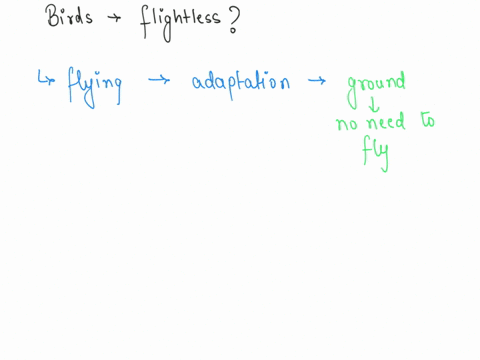 Birds → flightless?
↳ flying → adaptation → ground
↓
no need to
fly